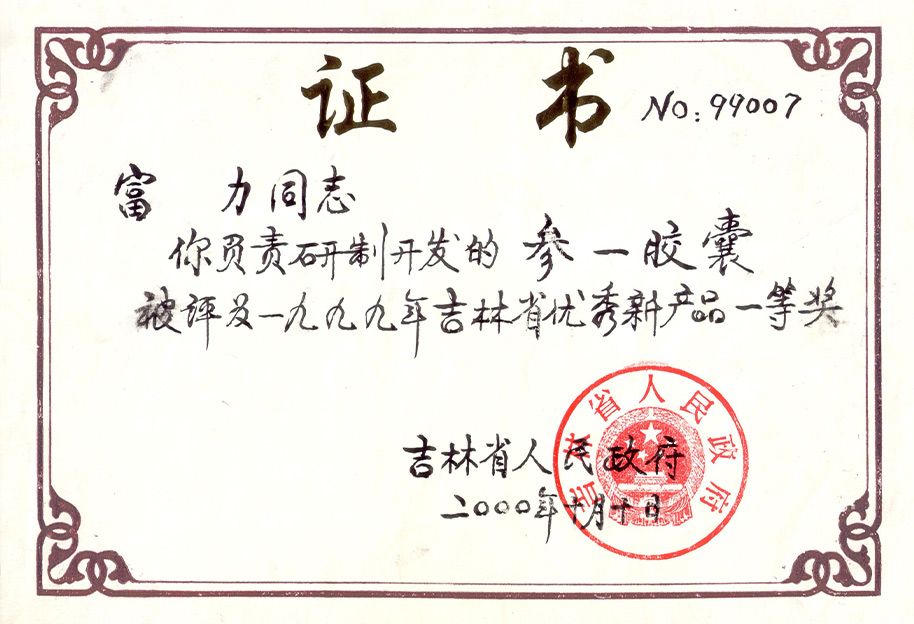 证 书 No: 99007
富 力同志
你负责研制开发的 参一胶囊
被评为一九九九年吉林省优秀新产品一等奖
吉林省人民政府
吉林省人民政府
二000年十月十日